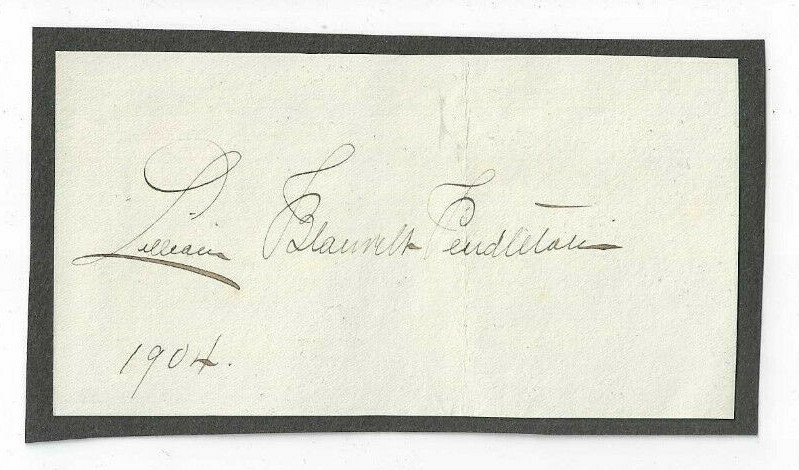 Lillian Blauvelt Pendleton
1904.